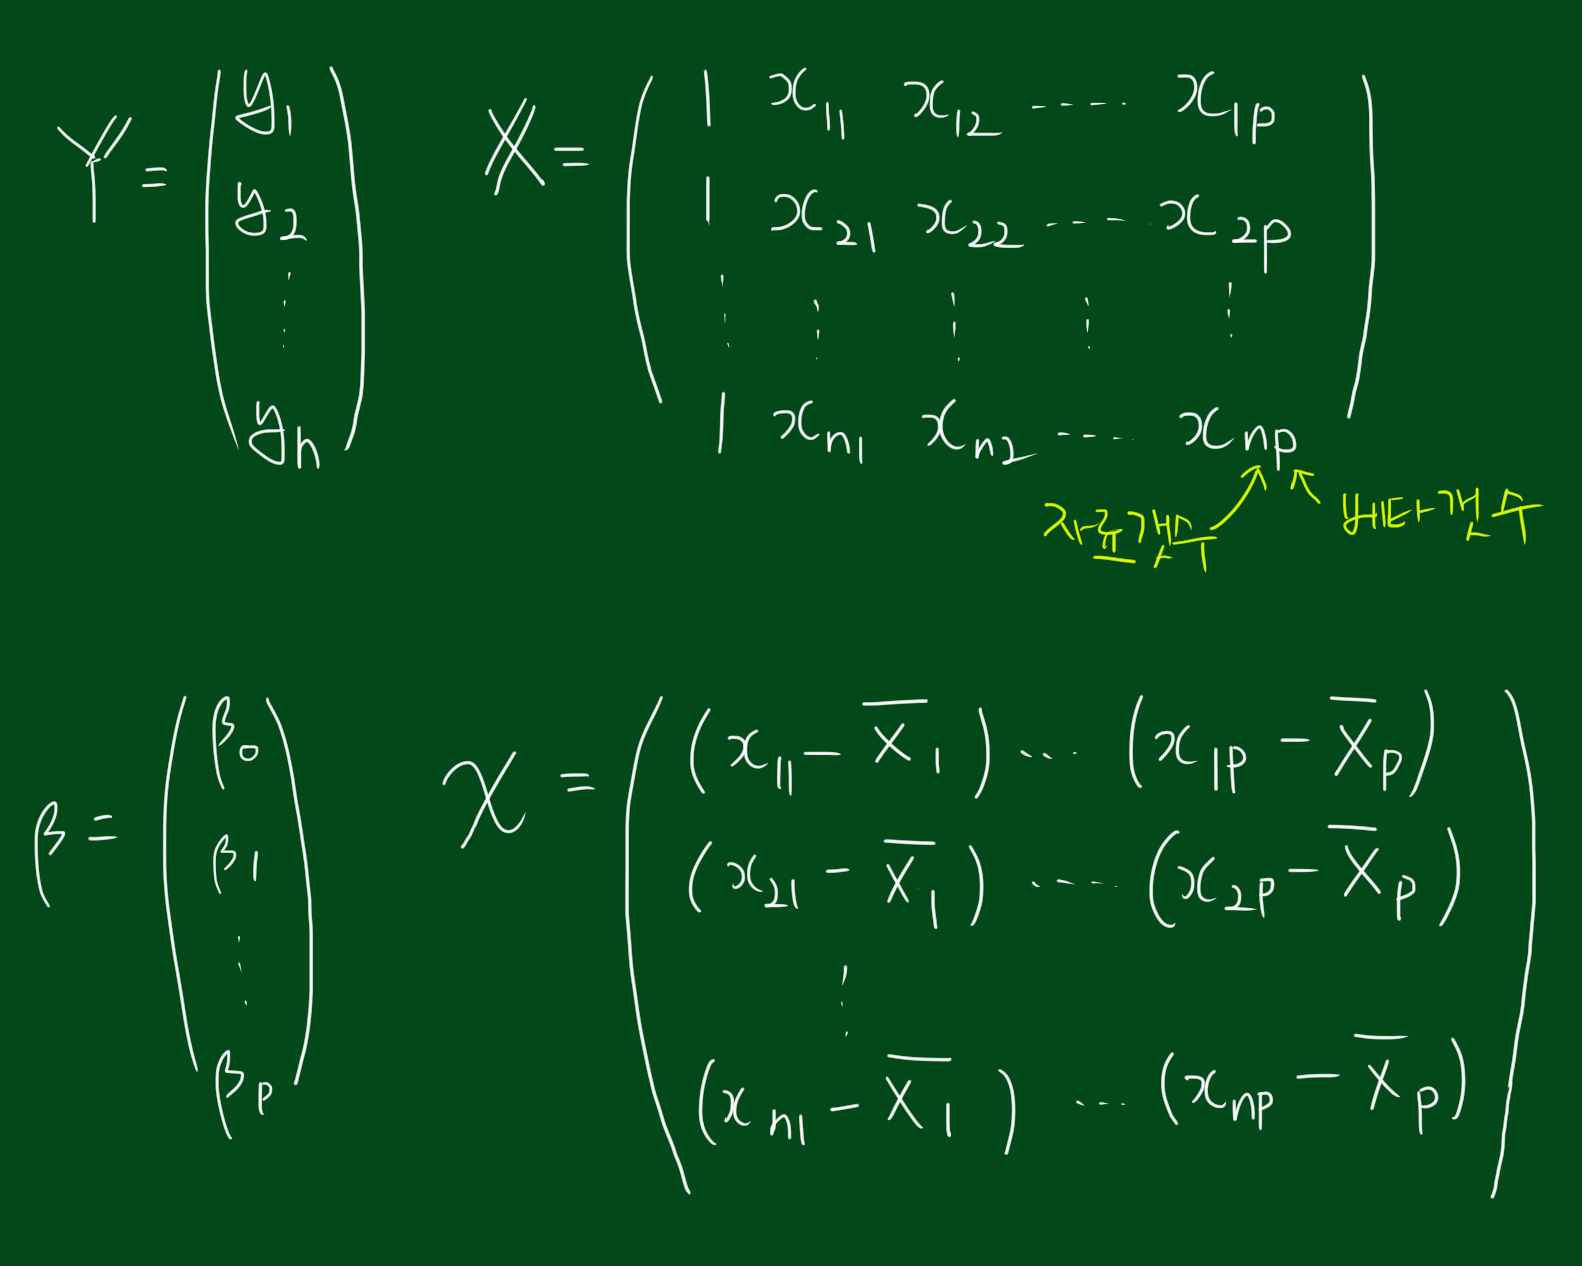 Y = ( y₁ y₂ ⋮ yₙ )
X = ( 1 x₁₁ x₁₂ ---- x₁ₚ
1 x₂₁ x₂₂ ---- x₂ₚ
⋮ ⋮ ⋮ ⋮ ⋮
1 xₙ₁ xₙ₂ ---- xₙₚ )
자료갯수 베타갯수
β = ( β₀ β₁ ⋮ βₚ )
X = ( (x₁₁ − X̄₁) ... (x₁ₚ − X̄ₚ)
(x₂₁ − X̄₁) ---- (x₂ₚ − X̄ₚ)
⋮
(xₙ₁ − X̄₁) ... (xₙₚ − X̄ₚ) )